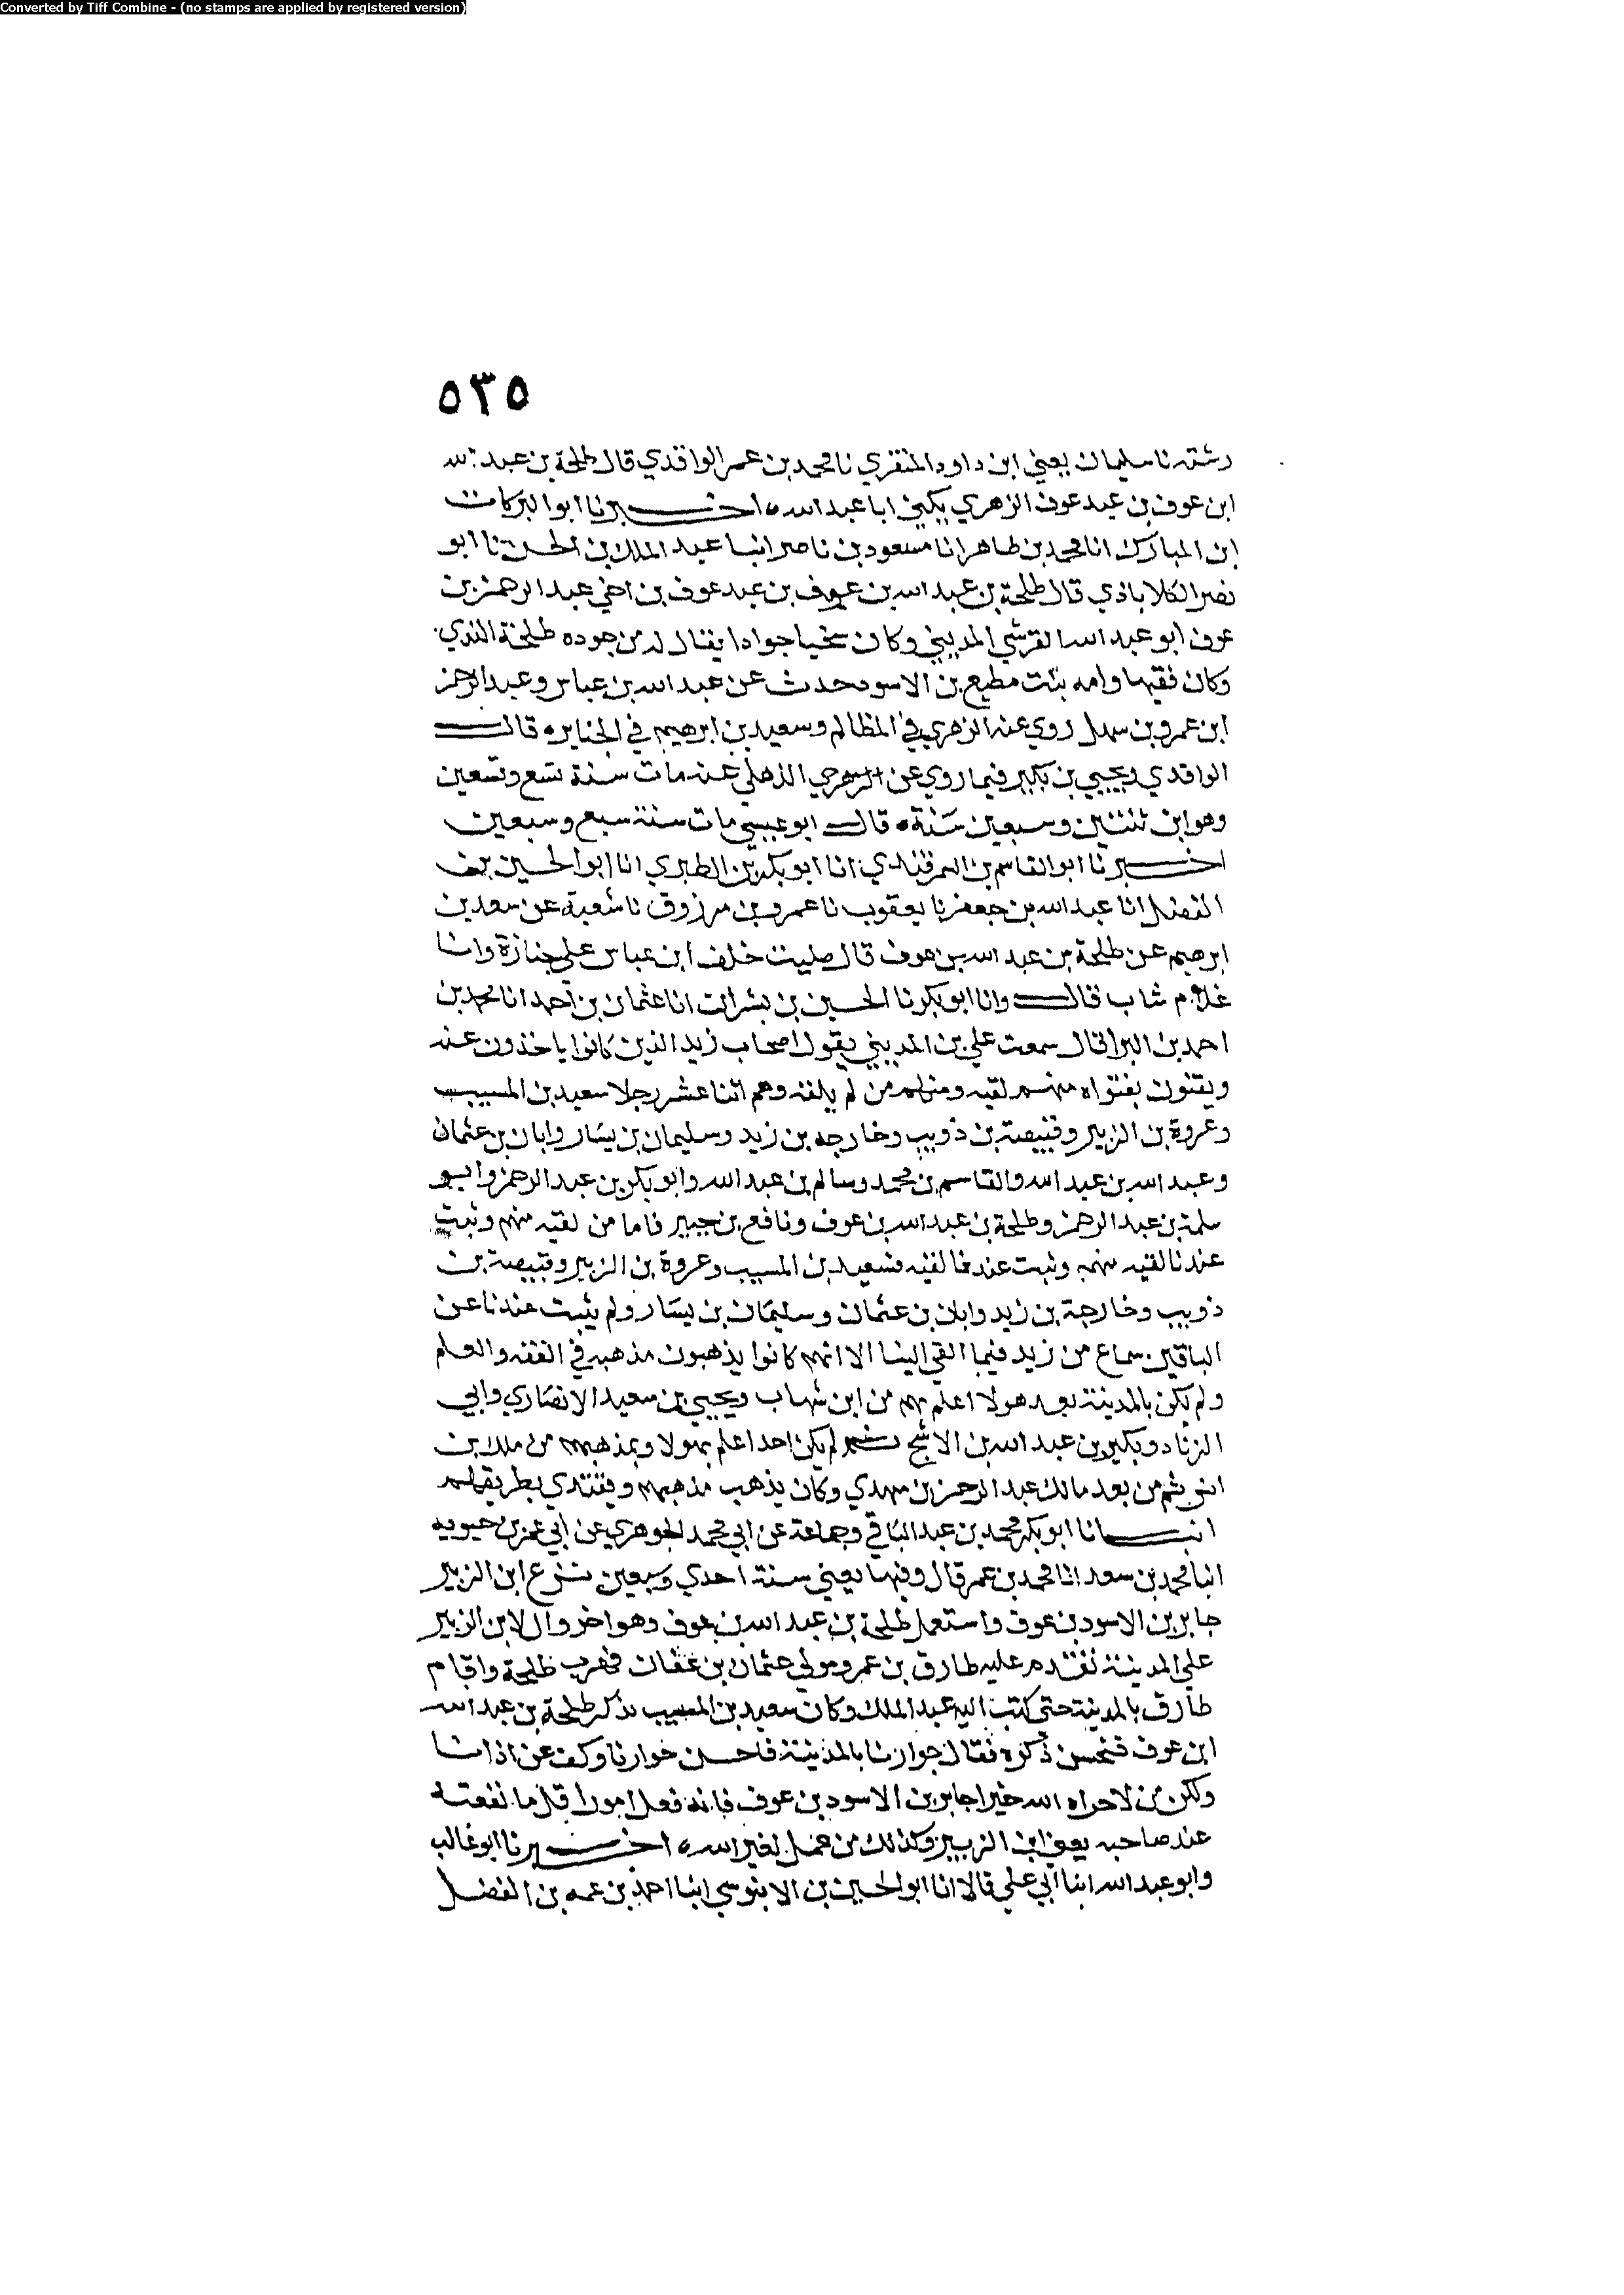 Converted by Tiff Combine - (no stamps are applied by registered version)
٥٣٥
رشته نا سليمان يعني ابن داود المنقري نا محمد بن عمر الواقدي قال طلحة بن عبد الله
ابن عوف بن عبد عوف الزهري يكني ابا عبد الله ه اخبرنا ابو البركات
ابن المبارك انا محمد بن طاهر انا مسعود بن ناصر انبا عبد الملك بن الحسن نا ابو
نصر الكلاباذي قال طلحة بن عبد الله بن عوف بن عبد عوف بن اخي عبد الرحمن بن
عوف ابو عبد الله القرشي المديني وكان سخيا جوادا يقال له من جوده طلحة الندي
وكان فقيها وامه بنت مطيع بن الاسود حدث عن عبد الله بن عباس وعبد الرحمن
ابن عمرو بن سهل روي عنه الزهري في المظالم وسعيد بن ابرهيم في الجنايز ه قال
الواقدي ويحيي بن بكير فيما روي عن الذهلي عنه مات سنة تسع وتسعين
وهو ابن ثنتين وسبعين سنة ه قال ابو عيسي مات سنة سبع وسبعين
اخبرنا ابو القاسم بن السمرقندي انا ابو بكر بن الطبري انا ابو الحسين بن
الفضل انا عبد الله بن جعفر نا يعقوب نا عمرو بن مرزوق نا شعبة عن سعد بن
ابرهيم عن طلحة بن عبد الله بن عوف قال صليت خلف ابن عباس علي جنازة وانا
غلام شاب قال وانا ابو بكر نا الحسين بن بشران انا عثمان بن احمد انا محمد بن
احمد بن البرا قال سمعت علي بن المديني يقول اصحاب زيد الذين كانوا ياخذون عنه
ويفتون بفتواه منهم لقيه ومنهم من لم يلقه وهم اثنا عشر رجلا سعيد بن المسيب
وعروة بن الزبير وقبيصة بن ذويب وخارجه بن زيد وسليمان بن يسار وابان بن عثمان
وعبد الله بن عبد الله والقاسم بن محمد وسالم بن عبد الله وابو بكر بن عبد الرحمن وابو
سلمة بن عبد الرحمن وطلحة بن عبد الله بن عوف ونافع بن جبير فاما من لقيه منهم وثبت
عندنا لقيه منهم وثبت عندنا لقيه فسعيد بن المسيب وعروة بن الزبير وقبيصة بن
ذويب وخارجة بن زيد وابان بن عثمان وسليمان بن يسار ولم يثبت عندنا عن
الباقين سماع من زيد فيما القي الينا الا انهم كانوا يذهبون مذهبه في الفقه والعلم
ولم يكن بالمدينة بعد هولا اعلم بهم من ابن شهاب ويحيي بن سعيد الانصاري وابي
الزناد وبكير بن عبد الله بن الاشج ثم لم يكن احد اعلم بهولا وبمذهبهم من ملك بن
انس ثم من بعد مالك عبد الرحمن بن مهدي وكان يذهب مذهبهم ويقتدي بطريقهم
انبانا ابو بكر محمد بن عبد الباقي وجماعة عن ابي محمد الجوهري عن ابي عمر بن حيويه
انبا محمد بن سعد انا محمد بن عمر قال وفيها يعني سنة احدي وسبعين نزع ابن الزبير
جابر بن الاسود بن عوف واستعمل طلحة بن عبد الله بن عوف وهو اخر وال لابن الزبير
علي المدينة فقدم عليه طارق بن عمرو مولي عثمان بن عفان فهرب طلحة واقام
طارق بالمدينة حتي كتب اليه عبد الملك وكان سعيد بن المسيب يذكر طلحة بن عبد الله
ابن عوف فيحسن ذكره فقال جوارنا بالمدينة فاحسن جوارنا وكف عن اذانا
ولكن من لا جزاه الله خيرا جابر بن الاسود بن عوف فانه فعل امورا قل ما نفعته
عند صاحبه يعني ابن الزبير وكذلك من عمل لغير الله ه اخبرنا ابو غالب
وابو عبد الله ابنا ابي علي قالا انا ابو الحسين بن الابنوسي انبا احمد بن عبيد بن الفضل